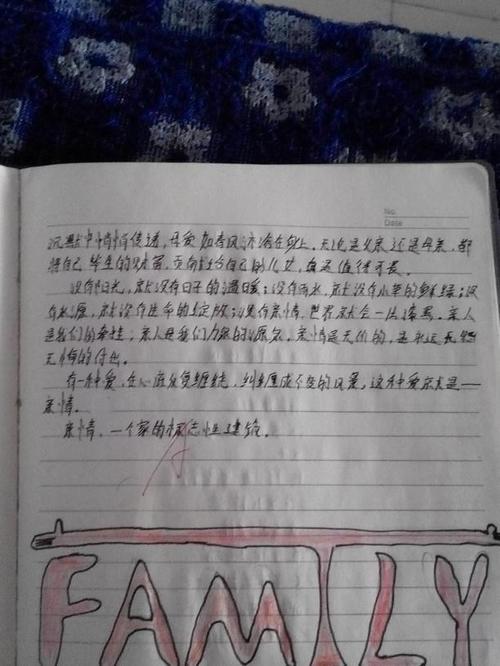 No.
Date
沉默中悄悄传递,母爱如春风沐浴在身上。无论是父亲还是母亲,都
将自己毕生的财富,贡献给自己的儿女,真是值得可是。
没有阳光,就没有日子的温暖;没有雨水,就没有小草的绿;没
有水源,就没有生命的绽放;没有亲情,世界就会一片漆黑。亲人
是我们的牵挂;亲人是我们力量的源泉。亲情是无价的,是永远长
无悔的付出。
有一种爱,在心底反复缠绕,纠缠成不变的风景,这种爱就是——
亲情。
亲情,一个家的标志性建筑。
FAMILY